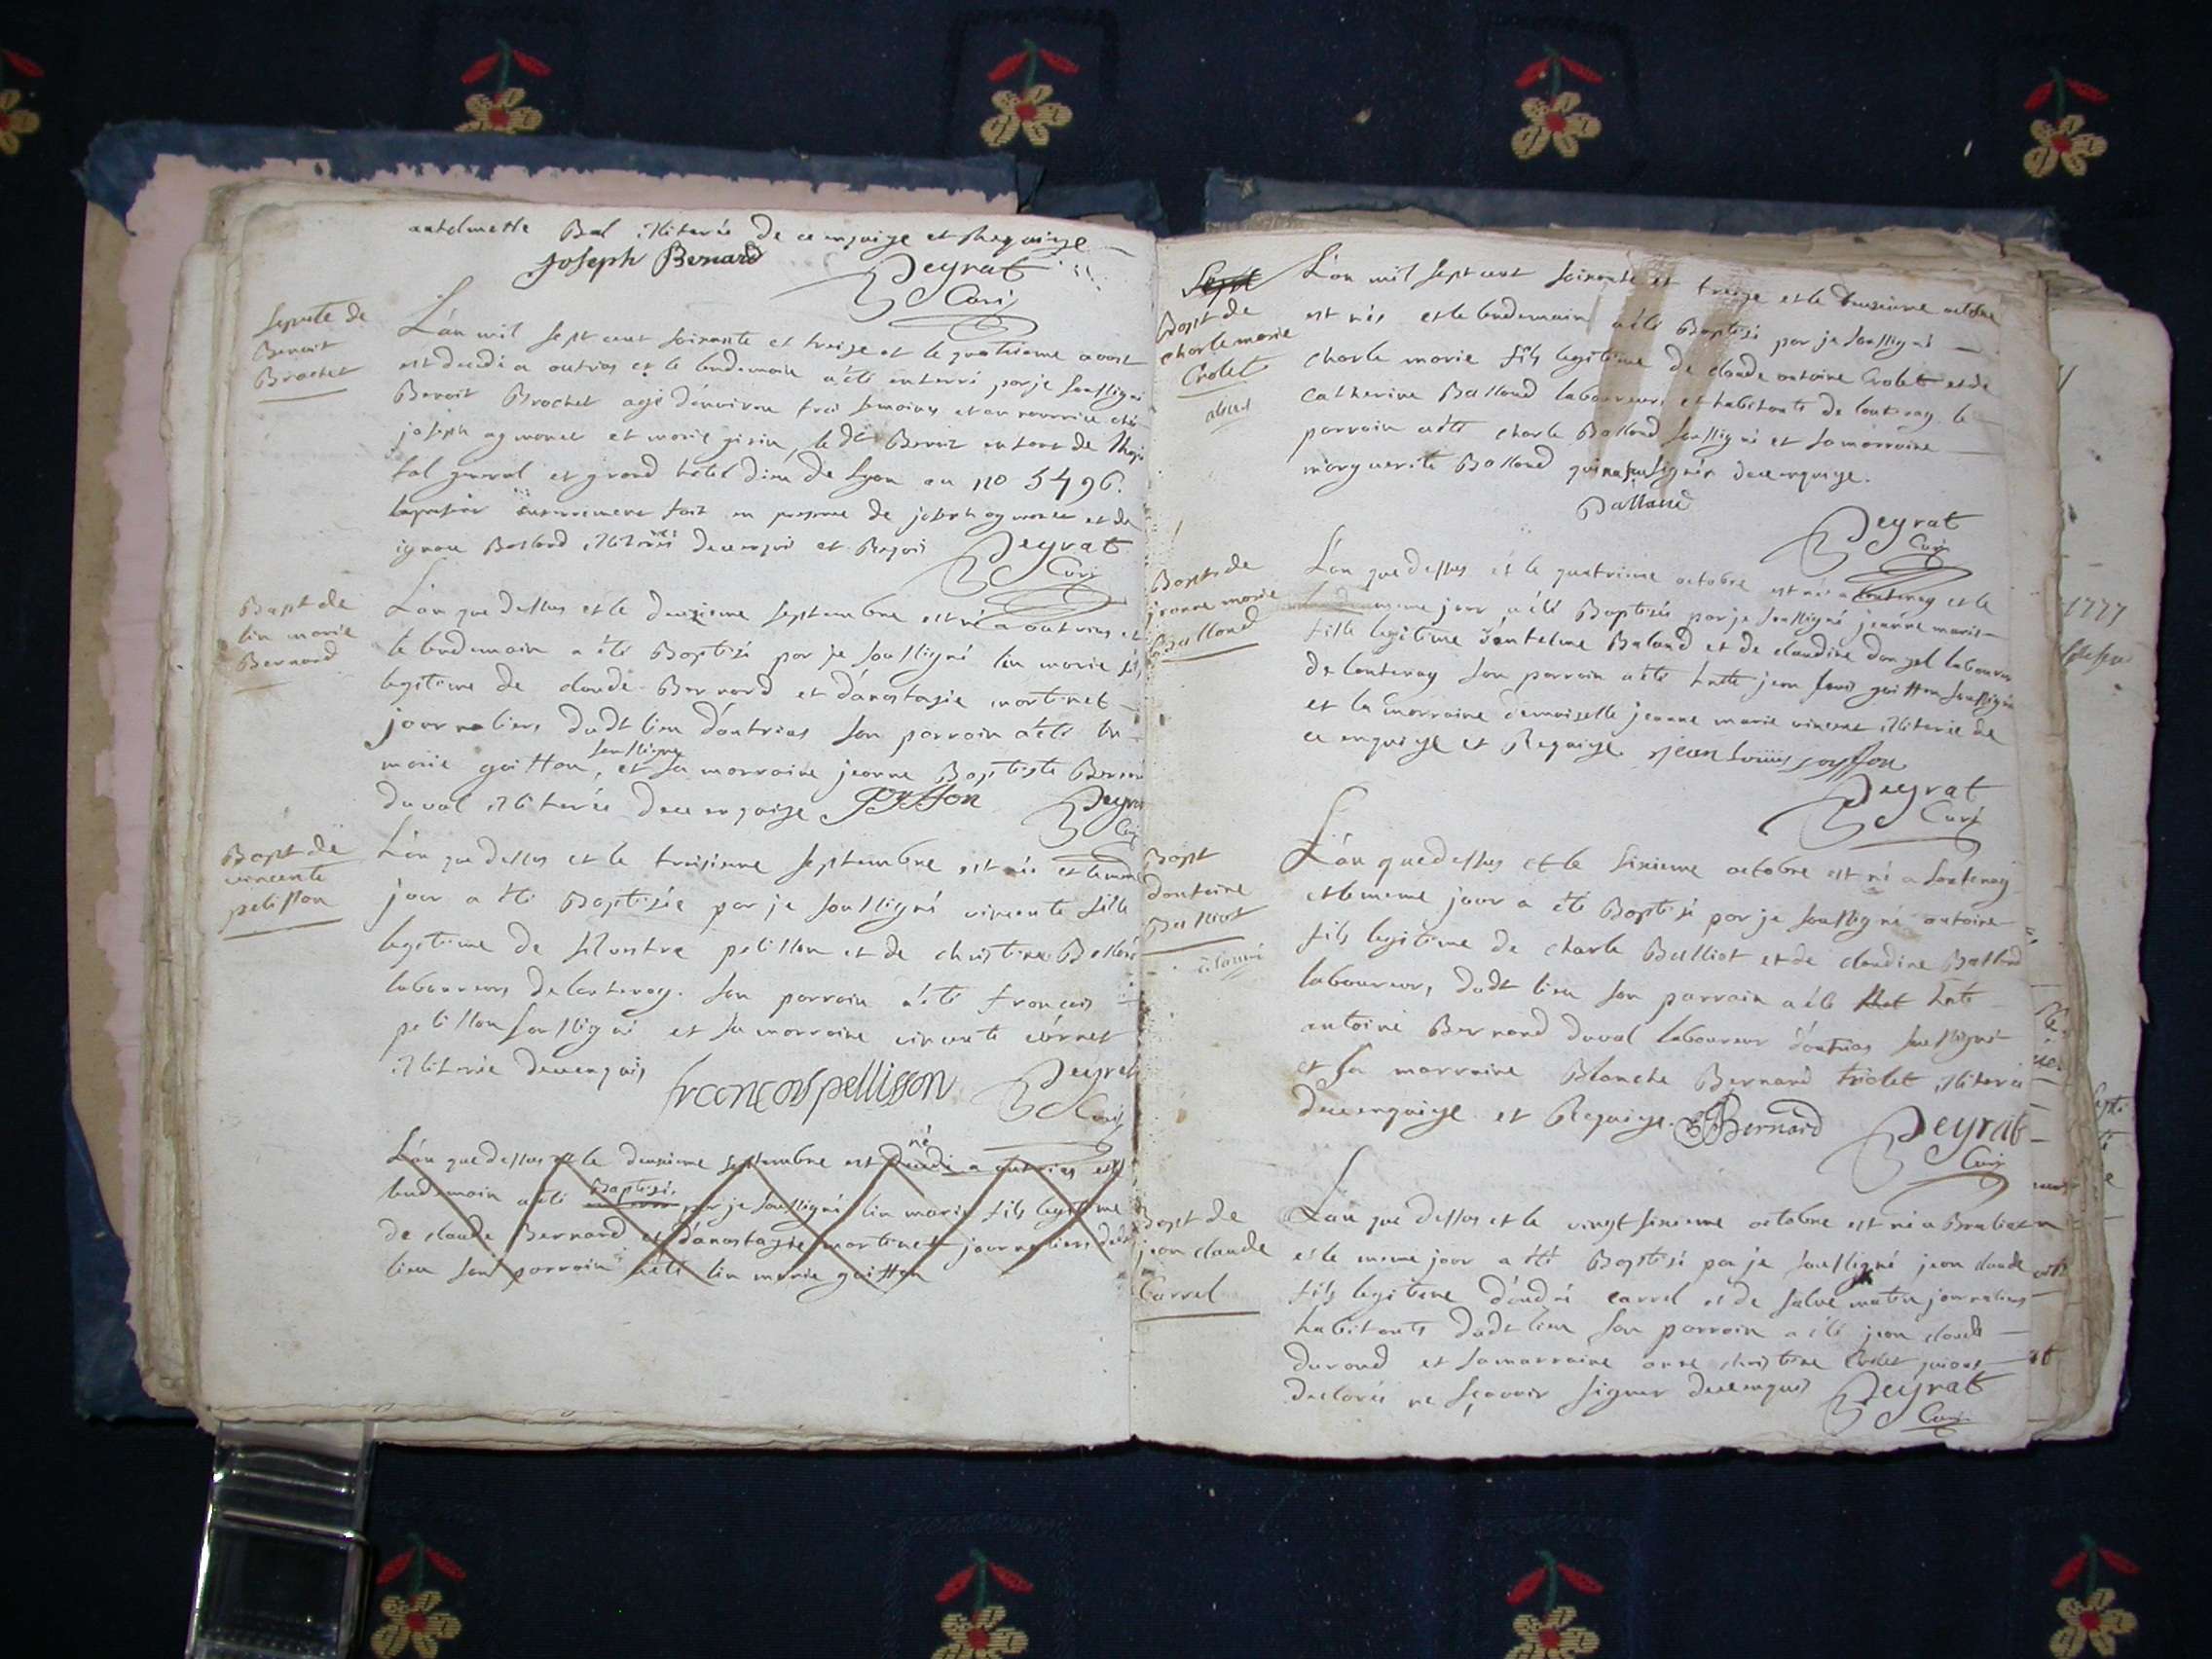 antelmette Bal illiterée de ce enquise et Requise
Joseph Benard
Peyrat
Curé
Sepulte de
Benoit
Brochet
L'an mil sept cent soixante et treize et le quatrieme aoust
est decedé a outrias et le lendemain a été enterré par je soussigné
Benoit Brochet agé d'environ troi semaines et en nourrice ché
joseph aymonet et marie girin, le dt Benoit enfant de l'hopi
tal general et grand hôtel dieu de Lyon au no 5496.
enterrement fait en presence de joseph aymonet et de
Balland illiterés de ce enquis et Requis Peyrat
Curé
Bapt de
lin marie
Bernard
L'an que dessus et le deuxieme septembre est né a outrias et
le lendemain a été Baptisé par je soussigné lin marie fils
legitime de claude Bernard et d'anastasie martinet
journaliers dudt lieu d'outrias son parrain a été lin
marie goiffon, soussigné et sa marraine jeanne Baptiste Bernard
duval illiterée de ce enquise Goyffon Peyrat
Curé
Bapt de
vincente
pelisson
L'an que dessus et le troisieme septembre est née et le meme
jour a été Baptisée par je soussigné vincente fille
legitime de silvestre pelisson et de christine
laboureurs de lantenay. son parrain a été françois
pelisson soussigné et sa marraine vincente
illiterée de ce enquis
françois pellisson Peyrat
Curé
L'an que dessus et le deuxieme septembre est decedé né a outrias et le
lendemain a été Baptisé par je soussigné lin marie fils legitime
de claude Bernard et d'anastasie martinet journaliers dudt
lieu son parrain a été lin marie goiffon
Sept
Bapt de
charle marie
Crolet
L'an mil sept cent soixante et treize et le deuxieme octobre
est né et le lendemain a été Baptisé par je soussigné
charle marie fils legitime de claude antoine Crolet et de
catherine Balland laboureurs et habitants de lantenay le
parrain a été charle Balland soussigné et sa marraine
marguerite Balland qui na su signer de ce enquise.
Balland
Peyrat
Curé
Bapt de
jeanne marie
Balland
L'an que dessus et le quatrieme octobre est née a lantenay et le
meme jour a été Baptisée par je soussigné jeanne marie
fille legitime d'antelme Baland et de claudine dongel laboureurs
de lantenay son parrain a été jean louis goiffon soussigné
et la marraine demoiselle jeanne marie vincent illiterée de
ce enquise et Requise jean louis goyffon
Peyrat
Curé
Bapt
d'antoine
Balliot
L'an que dessus et le sixieme octobre est né a lantenay
et le meme jour a été Baptisé par je soussigné antoine
fils legitime de charle Balliot et de claudine Balland
laboureurs, dudt lieu son parrain a été
antoine Bernard duval laboureur d'outrias soussigné
et sa marraine Blanche Bernard triolet illiterée
de ce enquise et Requise. Bernard Peyrat
Curé
Bapt de
jean claude
Carrel
L'an que dessus et le vingt sixieme octobre est né a
et le meme jour a été Baptisé par je soussigné jean claude
fils legitime d'andré carrel et de journaliers
habitants dudt lieu son parrain a été jean claude
durand et sa marraine christine Crolet qui ont
declarés ne sçavoir signer de ce enquis Peyrat
Curé
1777